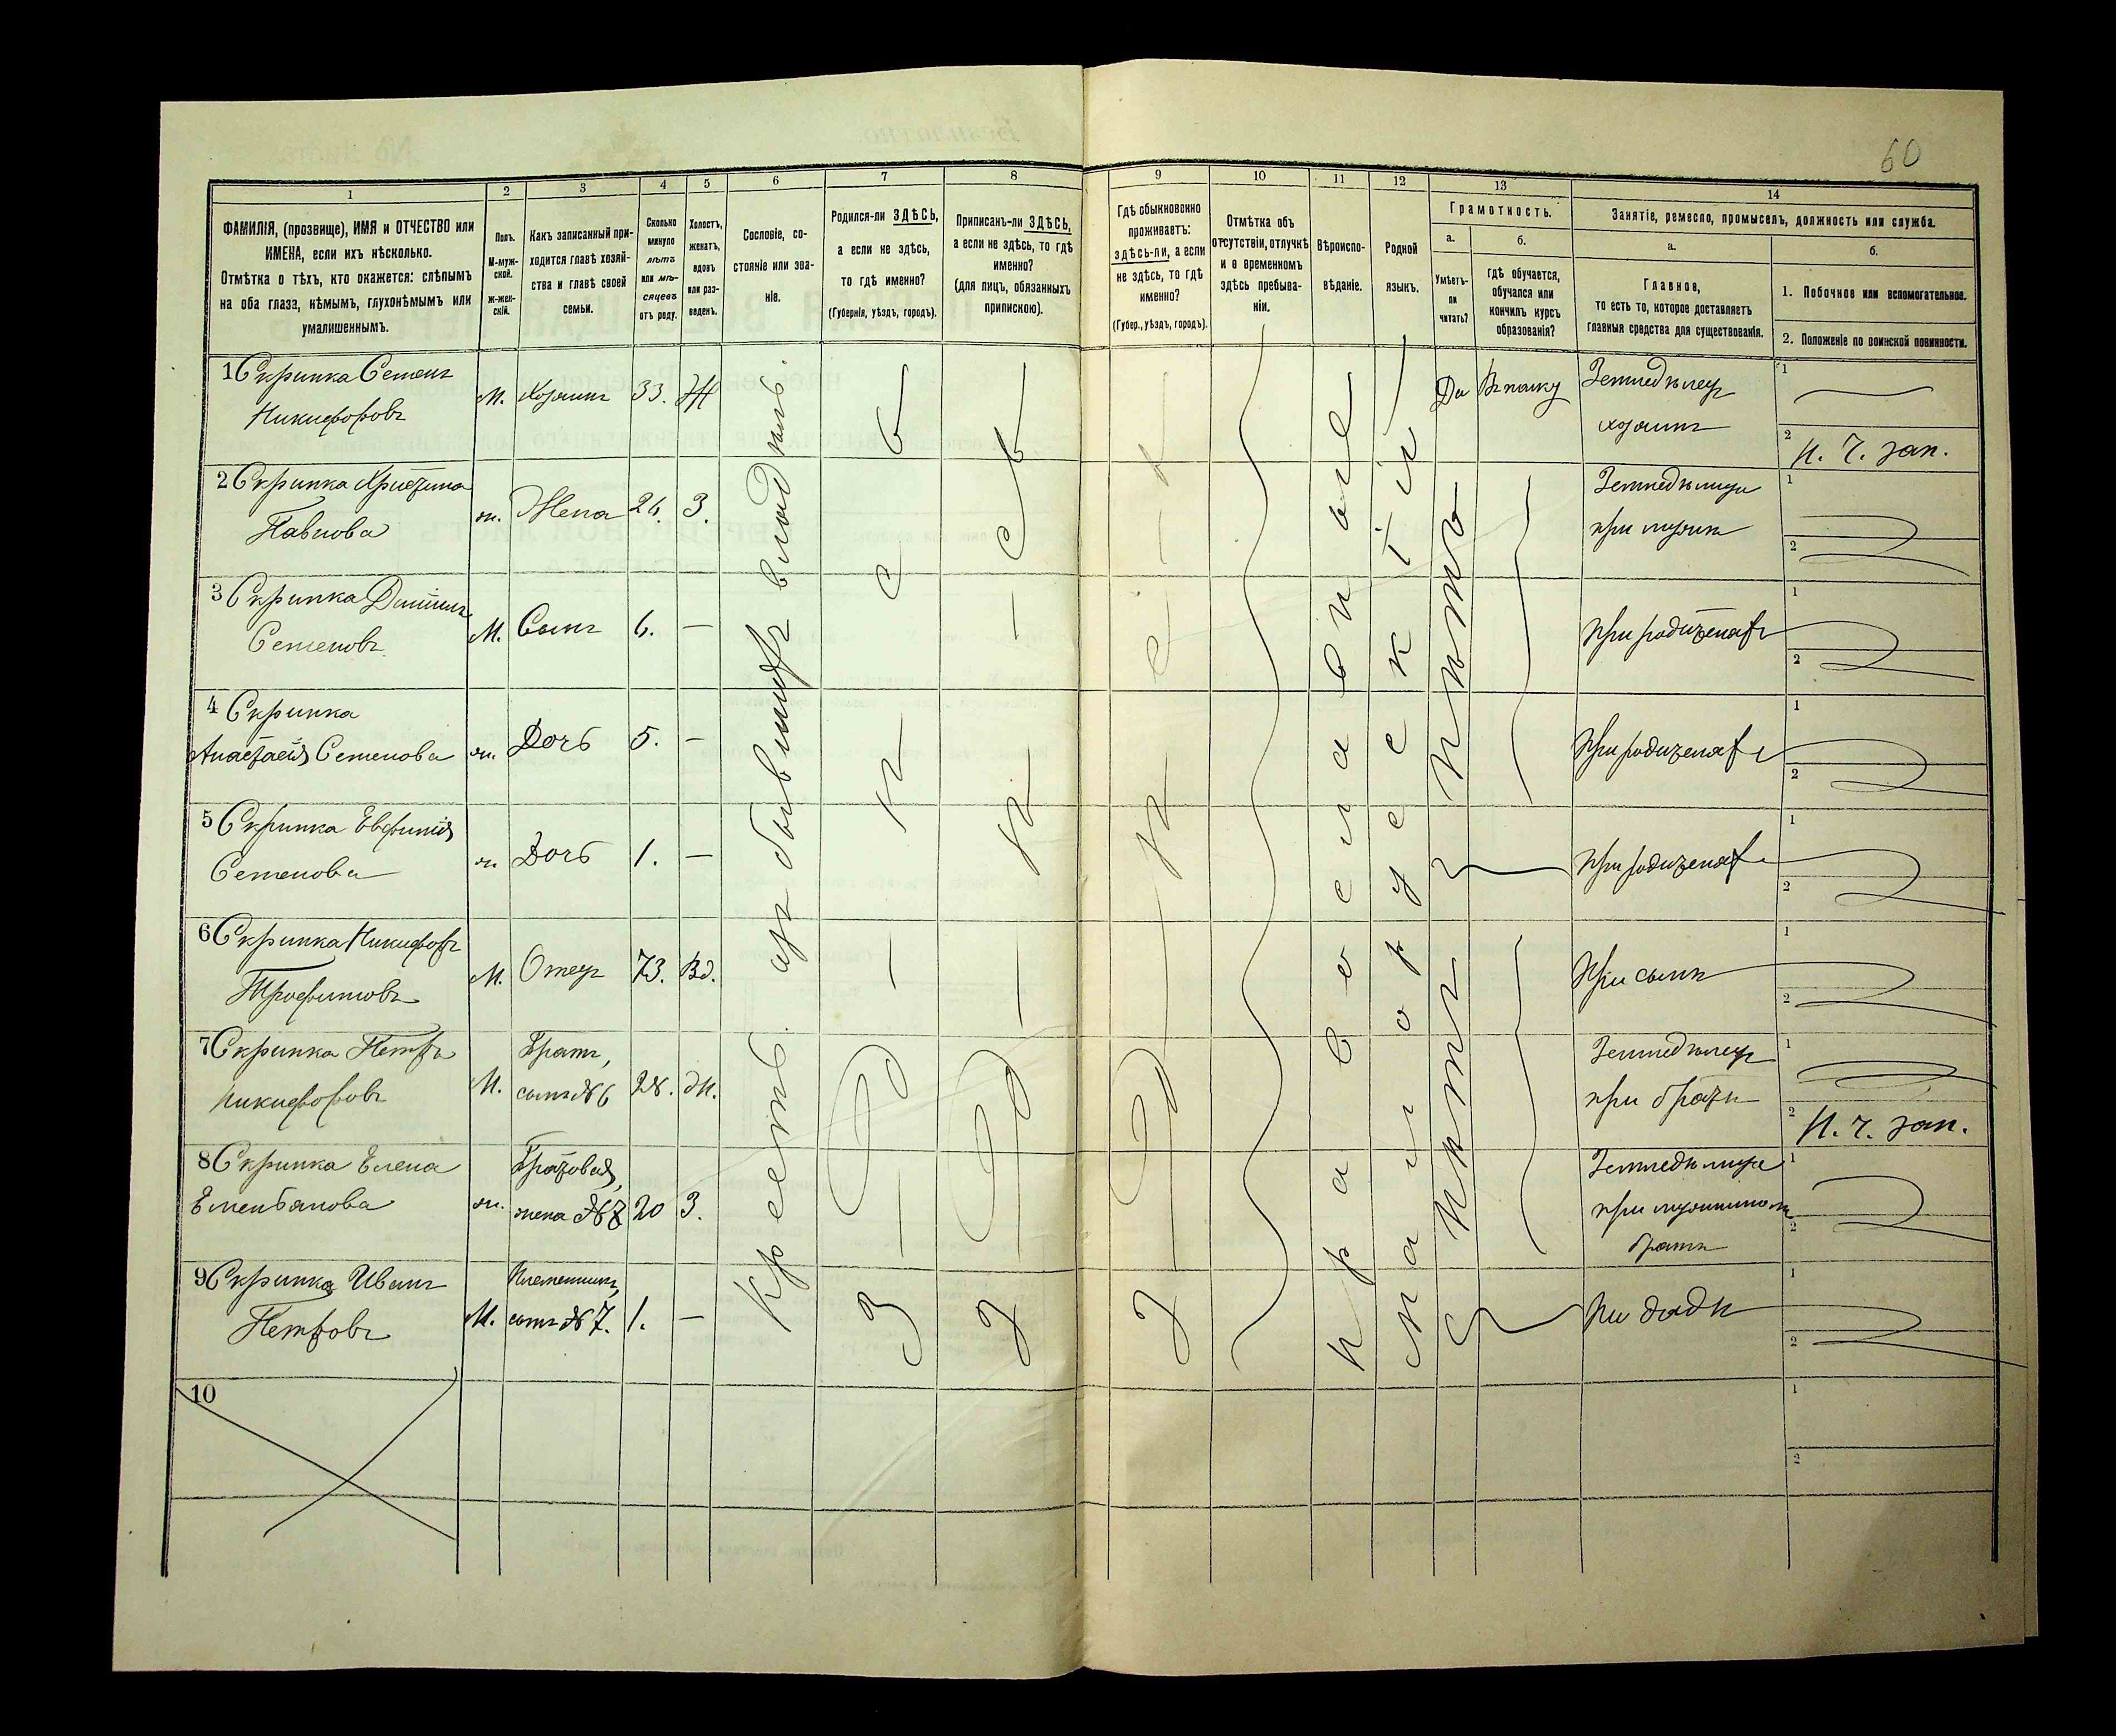 60
1 2 3 4 5 6 7 8 9 10 11 12 13 14
ФАМИЛІЯ, (прозвище), ИМЯ и ОТЧЕСТВО или
ИМЕНА, если ихъ нѣсколько.
Отмѣтка о тѣхъ, кто окажется: слѣпымъ
на оба глаза, нѣмымъ, глухонѣмымъ или
умалишеннымъ.
Полъ.
М-муж-
ской.
ж-жен-
скій.
Какъ записанный при-
ходится главѣ хозяй-
ства и главѣ своей
семьи.
Сколько
минуло
лѣтъ
или мѣ-
сяцевъ
отъ роду.
Холостъ,
женатъ,
вдовъ
или раз-
веденъ.
Сословіе, со-
стояніе или зва-
ніе.
Родился-ли ЗДѢСЬ,
а если не здѣсь,
то гдѣ именно?
(Губернія, уѣздъ, городъ).
Приписанъ-ли ЗДѢСЬ,
а если не здѣсь, то гдѣ
именно?
(для лицъ, обязанныхъ
припискою).
Гдѣ обыкновенно
проживаетъ:
здѣсь-ли, а если
не здѣсь, то гдѣ
именно?
(Губер., уѣздъ, городъ).
Отмѣтка объ
отсутствіи, отлучкѣ
и о временномъ
здѣсь пребыва-
ніи.
Вѣроиспо-
вѣданіе.
Родной
языкъ.
Грамотность.
а.
Умѣетъ-
ли
читать?
б.
гдѣ обучается,
обучался или
кончилъ курсъ
образованія?
Занятіе, ремесло, промыселъ, должность или служба.
а.
Главное,
то есть то, которое доставляетъ
главныя средства для существованія.
б.
1. Побочное или вспомогательное.
2. Положеніе по воинской повинности.
1 Скрипка Семенъ
Никифоровъ
М. Хозяинъ 33. Ж
Да Въ полку
Земледѣлецъ
хозяинъ
1
2 Н. ч. зап.
2 Скрипка Христина
Павлова
ж. Жена 26. З.
Земледѣлица
при мужѣ
1
2
3 Скрипка Даніилъ
Семеновъ
М. Сынъ 6. —
При родителяхъ
1
2
4 Скрипка
Анастасія Семенова
ж. Дочь 5. —
При родителяхъ
1
2
5 Скрипка Евфимія
Семенова
ж. Дочь 1. —
При родителяхъ
1
2
6 Скрипка Никифоръ
Трофимовъ
М. Отецъ 73. Вд.
При сынѣ
1
2
7 Скрипка Петръ
Никифоровъ
М. Братъ,
сынъ №6 28. Ж.
Земледѣлецъ
при братѣ
1
2 Н. ч. зап.
8 Скрипка Елена
Емельянова
ж. Братовая,
жена №7 20 З.
Земледѣлица
при мужниномъ
братѣ
1
2
9 Скрипка Иванъ
Петровъ
М. Племянникъ,
сынъ №7. 1. —
При дядѣ
1
2
10
1
2
Крестьянинъ изъ бывшихъ владѣльч.
Здѣсь
Здѣсь
Здѣсь
Православное
Малорусскій
Нѣтъ
Нѣтъ